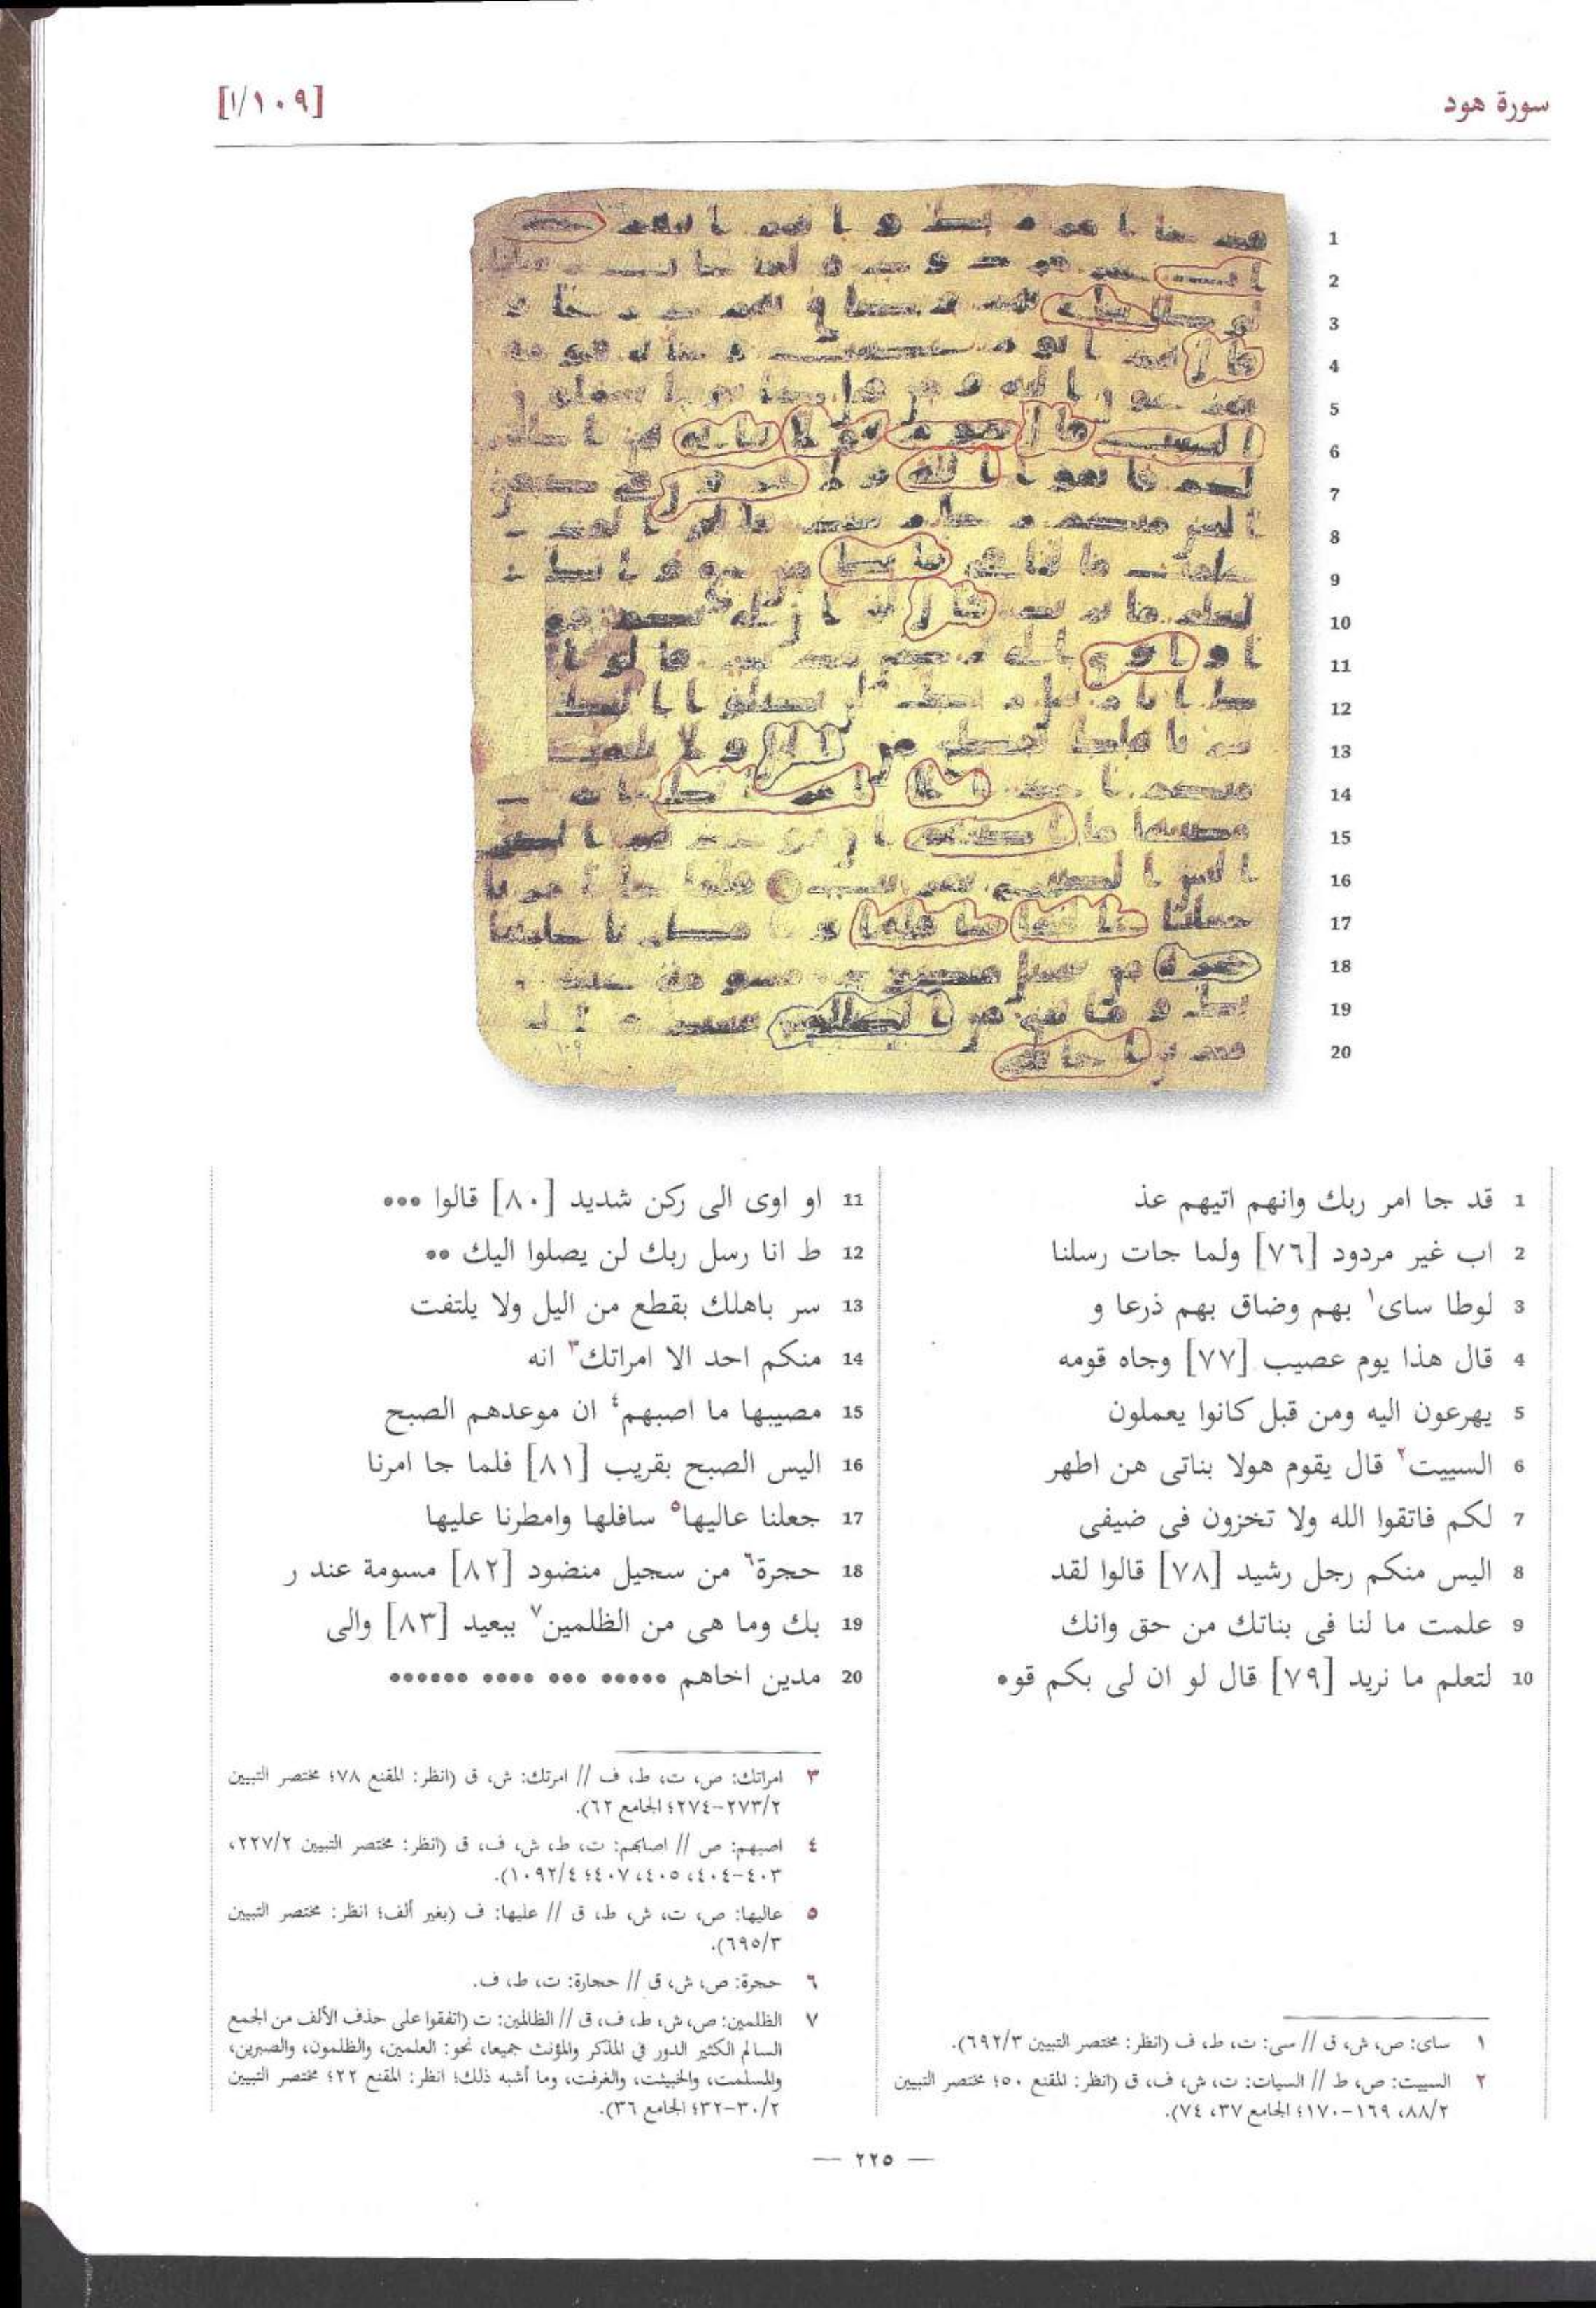 سورة هود
[١٠٩/١]
1 قد جا امر ربك وانهم اتيهم عذ
2 اب غير مردود [٧٦] ولما جات رسلنا
3 لوطا ساى١ بهم وضاق بهم ذرعا و
4 قال هذا يوم عصيب [٧٧] وجاه قومه
5 يهرعون اليه ومن قبل كانوا يعملون
6 السييت٢ قال يقوم هولا بناتى هن اطهر
7 لكم فاتقوا الله ولا تخزون فى ضيفى
8 اليس منكم رجل رشيد [٧٨] قالوا لقد
9 علمت ما لنا فى بناتك من حق وانك
10 لتعلم ما نريد [٧٩] قال لو ان لى بكم قو•
11 او اوى الى ركن شديد [٨٠] قالوا •••
12 ط انا رسل ربك لن يصلوا اليك ••
13 سر باهلك بقطع من اليل ولا يلتفت
14 منكم احد الا امراتك٣ انه
15 مصيبها ما اصبهم٤ ان موعدهم الصبح
16 اليس الصبح بقريب [٨١] فلما جا امرنا
17 جعلنا عاليها٥ سافلها وامطرنا عليها
18 حجرة٦ من سجيل منضود [٨٢] مسومة عند ر
19 بك وما هى من الظلمين٧ ببعيد [٨٣] والى
20 مدين اخاهم ••••• ••• •••• ••••••
١ ساى: ص، ش، ق // سى: ت، ط، ف (انظر: مختصر التبيين ٦٩٢/٣).
٢ السييت: ص، ط // السيات: ت، ش، ف، ق (انظر: المقنع ٥٠؛ مختصر التبيين
٨٨/٢، ١٦٩-١٧٠؛ الجامع ٣٧، ٧٤).
٣ امراتك: ص، ت، ط، ف // امرتك: ش، ق (انظر: المقنع ٧٨؛ مختصر التبيين
٢٧٣/٢-٢٧٤؛ الجامع ٦٢).
٤ اصبهم: ص // اصابهم: ت، ط، ش، ف، ق (انظر: مختصر التبيين ٢٢٧/٢،
٤٠٣-٤٠٤، ٤٠٥، ٤٠٧؛ ١٠٩٢/٤).
٥ عاليها: ص، ت، ش، ط، ق // عليها: ف (بغير ألف؛ انظر: مختصر التبيين
٦٩٥/٣).
٦ حجرة: ص، ش، ق // حجارة: ت، ط، ف.
٧ الظلمين: ص، ش، ط، ف، ق // الظالمين: ت (اتفقوا على حذف الألف من الجمع
السالم الكثير الدور في المذكر والمؤنث جميعا، نحو: العلمين، والظلمون، والصبرين،
والمسلمت، والخبيثت، والغرفت، وما أشبه ذلك؛ انظر: المقنع ٢٢؛ مختصر التبيين
٣٠/٢-٣٢؛ الجامع ٣٦).
— ٢٢٥ —